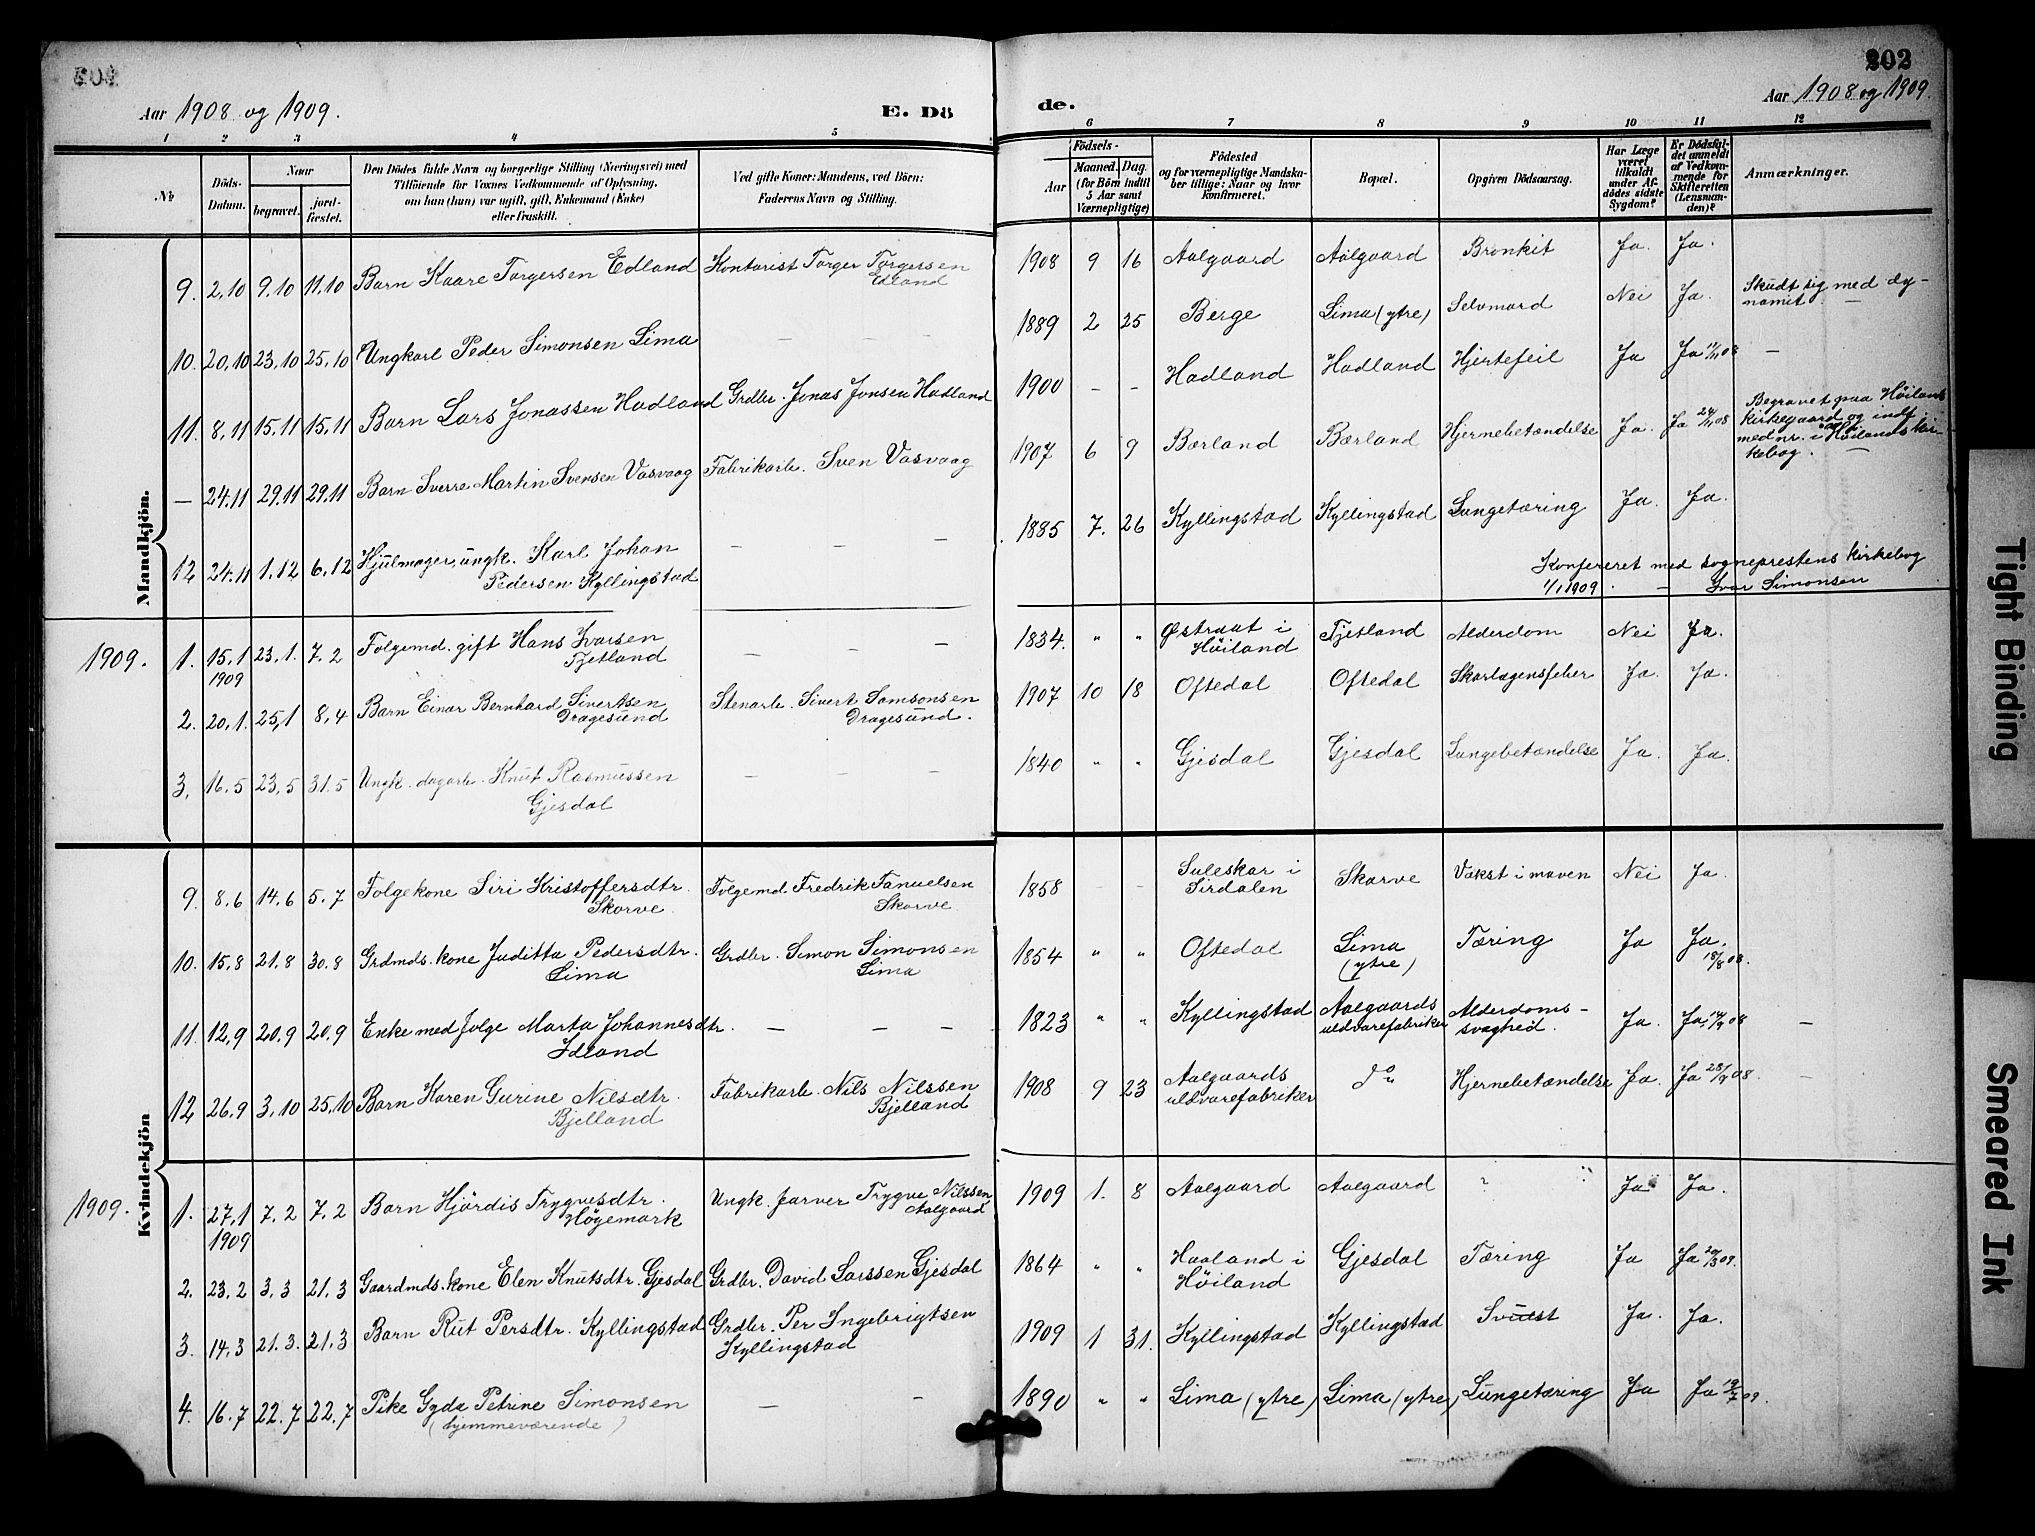 202
Aar 1908 og 1909.
E. Dö
de.
Aar 1908 og 1909.
1 2 3 4 5 6 7 8 9 10 11 12
No
Döds-Datum.
Naar
begravet.
jord-fæstet.
Den Dödes fulde Navn og borgerlige Stilling (Næringsvei) med
Tilföiende for Voxnes Vedkommende af Oplysning,
om han (hun) var ugift, gift, Enkemand (Enke)
eller fraskilt.
Ved gifte Koner: Mandens, ved Börn:
Faderens Navn og Stilling.
Födsels-
Aar
Maaned. Dag.
(for Börn indtil
5 Aar samt
Værnepligtige)
Födested
og for værnepligtige Mandska-
ber tillige: Naar og hvor
konfirmeret.
Bopæl.
Opgiven Dödsaarsag.
Har Læge
været
tilkaldt
under Af-
dödes sidste
Sygdom?
Er Dödsfal-
det anmeldt
af Vedkom-
mende for
Skifteretten
(Lensman-
den)?
Anmærkninger.
Mandkjön.
9. 2.10 9.10 11.10 Barn Kaare Torgersen Edland Kontorist Torger Torgersen Edland 1908 9 16 Aalgaard Aalgaard Bronkit Ja. Ja.
10. 20.10 23.10 25.10 Ungkarl Peder Simonsen Lima — — — 1889 2 25 Berge Lima (ytre) Selvmord Nei Ja. Skudt sig med dy-
namit. —
11. 8.11 15.11 15.11 Barn Lars Jonassen Hadland Grdbr. Jonas Jonsen Hadland 1900 - - Hadland Hadland Hjertefeil Ja Ja 11/11 08 —
— 24.11 29.11 29.11 Barn Sverre Martin Svensen Vasvaag Fabrikarb. Sven Vasvaag 1907 6 9 Bærland Bærland Hjernebetændelse Ja. Ja 24/11 08 Begravet paa Höilands
kirkegaard og indf.
med nr. i Höilands kir-
kebog. —
12 24.11 1.12 6.12 Hjulmager, ungk. Karl Johan
Pedersen Kyllingstad — — — 1885 7. 26 Kyllingstad Kyllingstad Lungetæring Ja. Ja.
Konfereret med sogneprestens kirkebog
1/1 1909. — Ivar Simonsen
1909. 1. 15.1 1909 23.1. 7.2 Folgemd. gift Hans Ivarsen
Tjetland — — — 1834. " " Østraat i
Höiland Tjetland Alderdom Nei Ja.
2. 20.1. 25.1 8.4 Barn Einar Bernhard Sivertsen
Dragesund Stenarb. Sivert Samsonsen
Dragesund. 1907 10 18 Oftedal Oftedal Skarlagensfeber Ja. Ja.
3. 16.5 23.5 31.5 Ungk. dagarb. Knut Rasmussen
Gjesdal — — — 1840 " " Gjesdal Gjesdal Lungebetændelse Ja. Ja.
Kvindekjön
9. 8.6 14.6 5.7 Folgekone Siri Kristoffersdtr.
Skorve. Folgemd. Fredrik Tanuelsen
Skorve. 1858 - - Suleskar i
Sirdalen Skorve Vækst i maven Nei Ja.
10. 15.8 21.8 30.8 Grdmds. kone Juditta Pedersdtr.
Lima Grdbr. Simon Simonsen
Lima 1854 " " Oftedal Lima
(ytre) Tæring Ja Ja.
18/8 08.
11. 12.9 20.9 20.9 Enke med folge Marta Johannesdtr.
Idland — — — 1823 " " Kyllingstad Aalgaards
uldvarefabriker Alderdoms-
svaghed. Ja. Ja. 14/9 08 —
12 26.9 3.10 25.10 Barn Karen Gurine Nilsdtr.
Bjelland Fabrikarb. Nils Nilssen
Bjelland 1908 9 23 Aalgaards
uldvarefabriker do Hjernebetændelse Ja. Ja 28/9 08. —
1909. 1. 27.1 1909 7.2 7.2 Barn Hjördis Trygvesdtr.
Høgemark Ungk. farver Trygve Nilssen
Aalgaard 1909 1. 8 Aalgaard Aalgaard ? Ja Ja.
2. 23.2 3.3 21.3 Gaardmds. kone Elen Knutsdtr. Gjesdal Grdbr. David Larssen Gjesdal 1864 " " Haaland i
Höiland Gjesdal Tæring Ja Ja 20/3 09.
3. 14.3 21.3. 21.3 Barn Rut Persdtr. Kyllingstad Grdbr. Per Ingebrigtsen
Kyllingstad 1909 1 31. Kyllingstad Kyllingstad Ja. Ja.
4. 16.7 22.7 22.7 Pike Gyda Petrine Simonsen
(hjemmeværende) — — 1890 " " Lima (ytre) Lima (ytre) Lungetæring Ja Ja 19/7 09.
Tight Binding
Smeared Ink